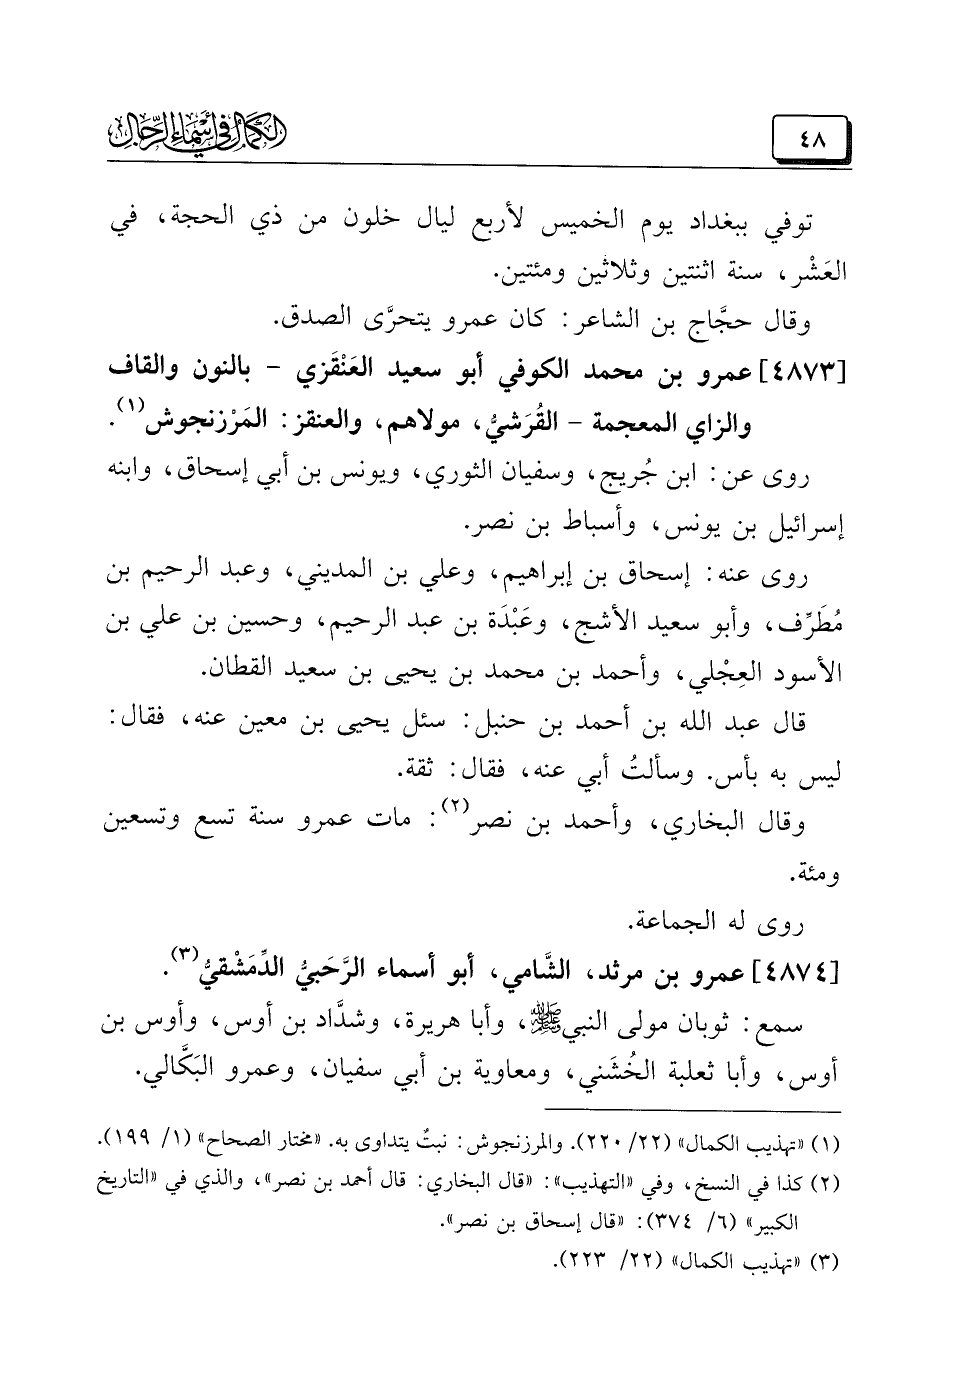 ٤٨
الكمال في أسماء الرجال
توفي ببغداد يوم الخميس لأربع ليال خلون من ذي الحجة، في
العَشْر، سنة اثنتين وثلاثين ومئتين.
وقال حجَّاج بن الشاعر: كان عمرو يتحرَّى الصدق.
[٤٨٧٣] عمرو بن محمد الكوفي أبو سعيد العَنْقَزي - بالنون والقاف
والزاي المعجمة - القُرَشيُّ، مولاهم، والعنقز: المَرْزنجوش(١).
روى عن: ابن جُريج، وسفيان الثوري، ويونس بن أبي إسحاق، وابنه
إسرائيل بن يونس، وأسباط بن نصر.
روى عنه: إسحاق بن إبراهيم، وعلي بن المديني، وعبد الرحيم بن
مُطَرِّف، وأبو سعيد الأشج، وعَبْدَة بن عبد الرحيم، وحسين بن علي بن
الأسود العِجْلي، وأحمد بن محمد بن يحيى بن سعيد القطان.
قال عبد الله بن أحمد بن حنبل: سئل يحيى بن معين عنه، فقال:
ليس به بأس. وسألتُ أبي عنه، فقال: ثقة.
وقال البخاري، وأحمد بن نصر(٢): مات عمرو سنة تسع وتسعين
ومئة.
روى له الجماعة.
[٤٨٧٤] عمرو بن مرثد، الشَّامي، أبو أسماء الرَّحَبيُّ الدِّمَشْقيُّ(٣).
سمع: ثوبان مولى النبي ﷺ، وأبا هريرة، وشدَّاد بن أوس، وأوس بن
أوس، وأبا ثعلبة الخُشَني، ومعاوية بن أبي سفيان، وعمرو البَكَّالي.
(١) «تهذيب الكمال» (٢٢/ ٢٢٠). والمرزنجوش: نبتٌ يتداوى به. «مختار الصحاح» (١/ ١٩٩).
(٢) كذا في النسخ، وفي «التهذيب»: «قال البخاري: قال أحمد بن نصر»، والذي في «التاريخ
الكبير» (٦/ ٣٧٤): «قال إسحاق بن نصر».
(٣) «تهذيب الكمال» (٢٢/ ٢٢٣).